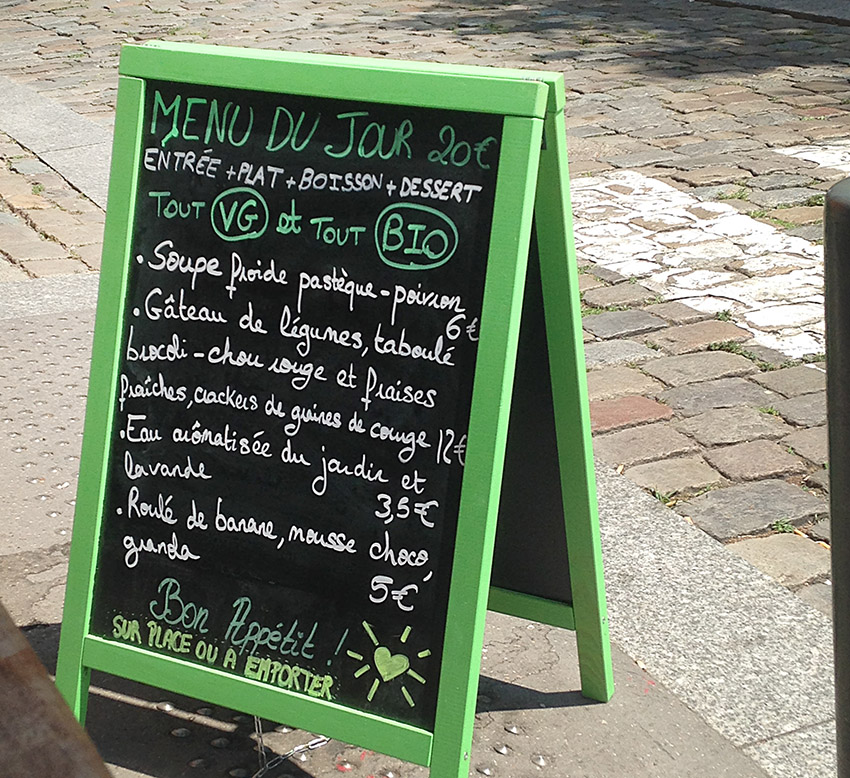 MENU DU JOUR 20€
ENTRÉE + PLAT + BOISSON + DESSERT
TOUT VG et TOUT BIO
• Soupe froide pastèque - poivron
6€
• Gâteau de légumes, taboulé
brocoli - chou rouge et fraises
fraîches, crackers de graines de courge 12€
• Eau arômatisée du jardin et
lavande 3,5€
• Roulé de banane, mousse choco,
granola 5€
Bon Appétit !
SUR PLACE OU À EMPORTER